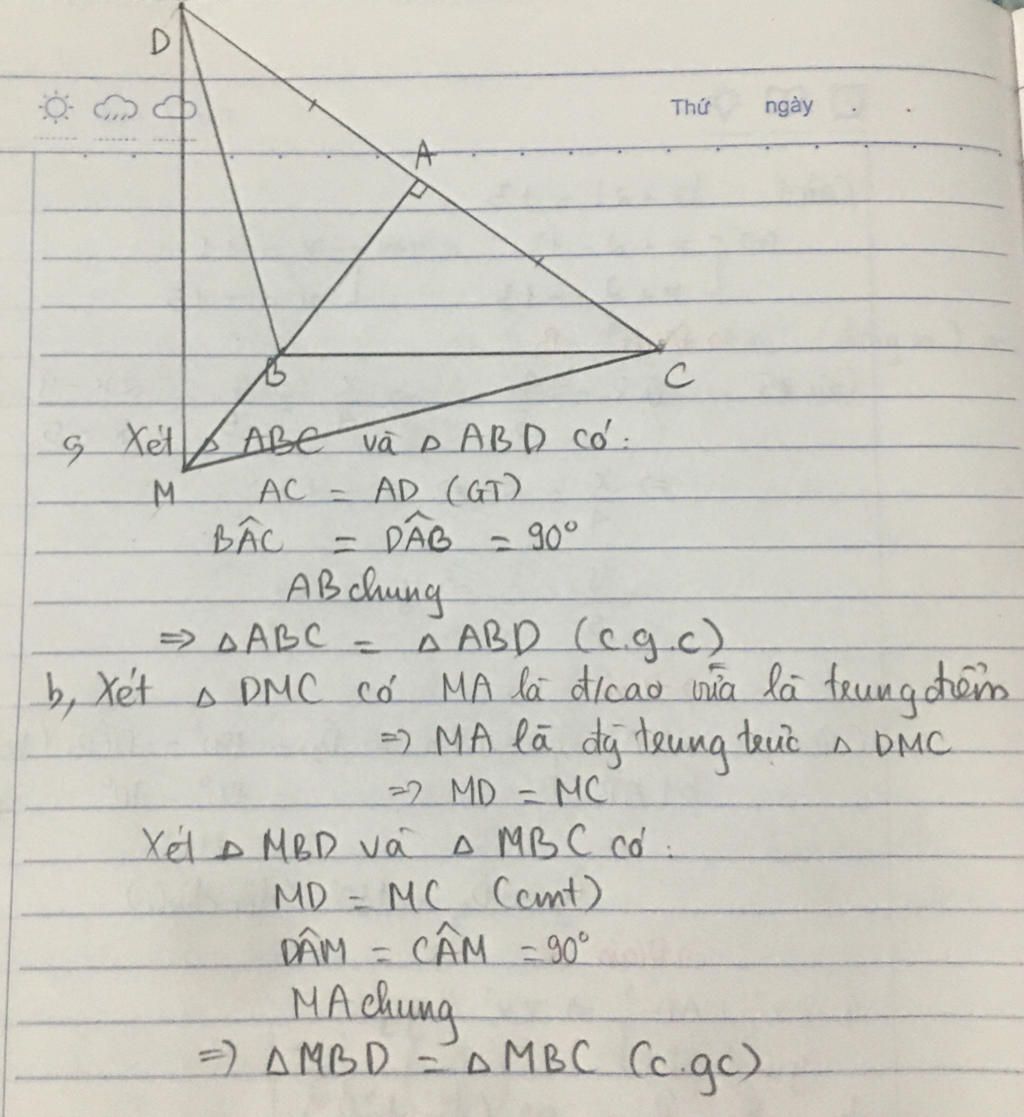 D
Thứ ngày
A
B
C
a, Xét △ ABC và △ ABD có:
M
AC = AD (GT)
BÂC = DÂB = 90°
AB chung
=> △ABC = △ABD (c.g.c)
b, Xét △ DMC có MA là đ/cao vừa là trung điểm
=> MA là đg trung trực △ DMC
=> MD = MC
Xét △ MBD và △ MBC có:
MD = MC (cmt)
DÂM = CÂM = 90°
MA chung
=> △MBD = △MBC (c.gc)